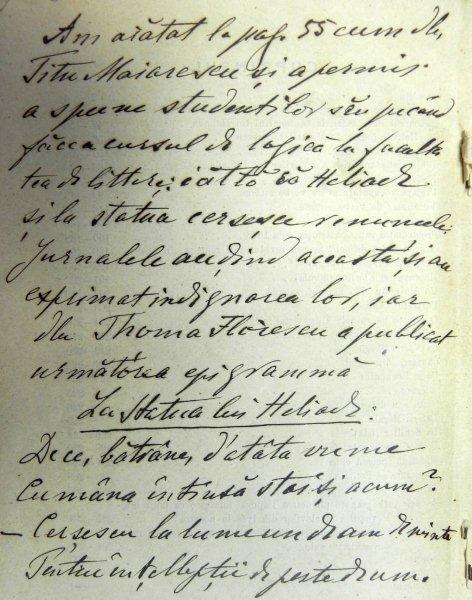 Am arătat la pag. 55 cum dl.
Titu Maiorescu și a permis
a spune studenților săi pe când
făcea cursul de logică la faculta
tea de littere: iată că Heliade
și la statua cerșesce renumele.
Jurnalele audind acoastă, și au
exprimat indignarea lor, iar
dlu Thoma Florescu a publicat
următórea epigrammă
La Statua lui Heliade:
De ce, bătrâne, d'atâta vreme
Cu mâna întinsă stai și acum?
— Cerșescu la lume un dram de minte
Pentru înțelepții de peste drum.